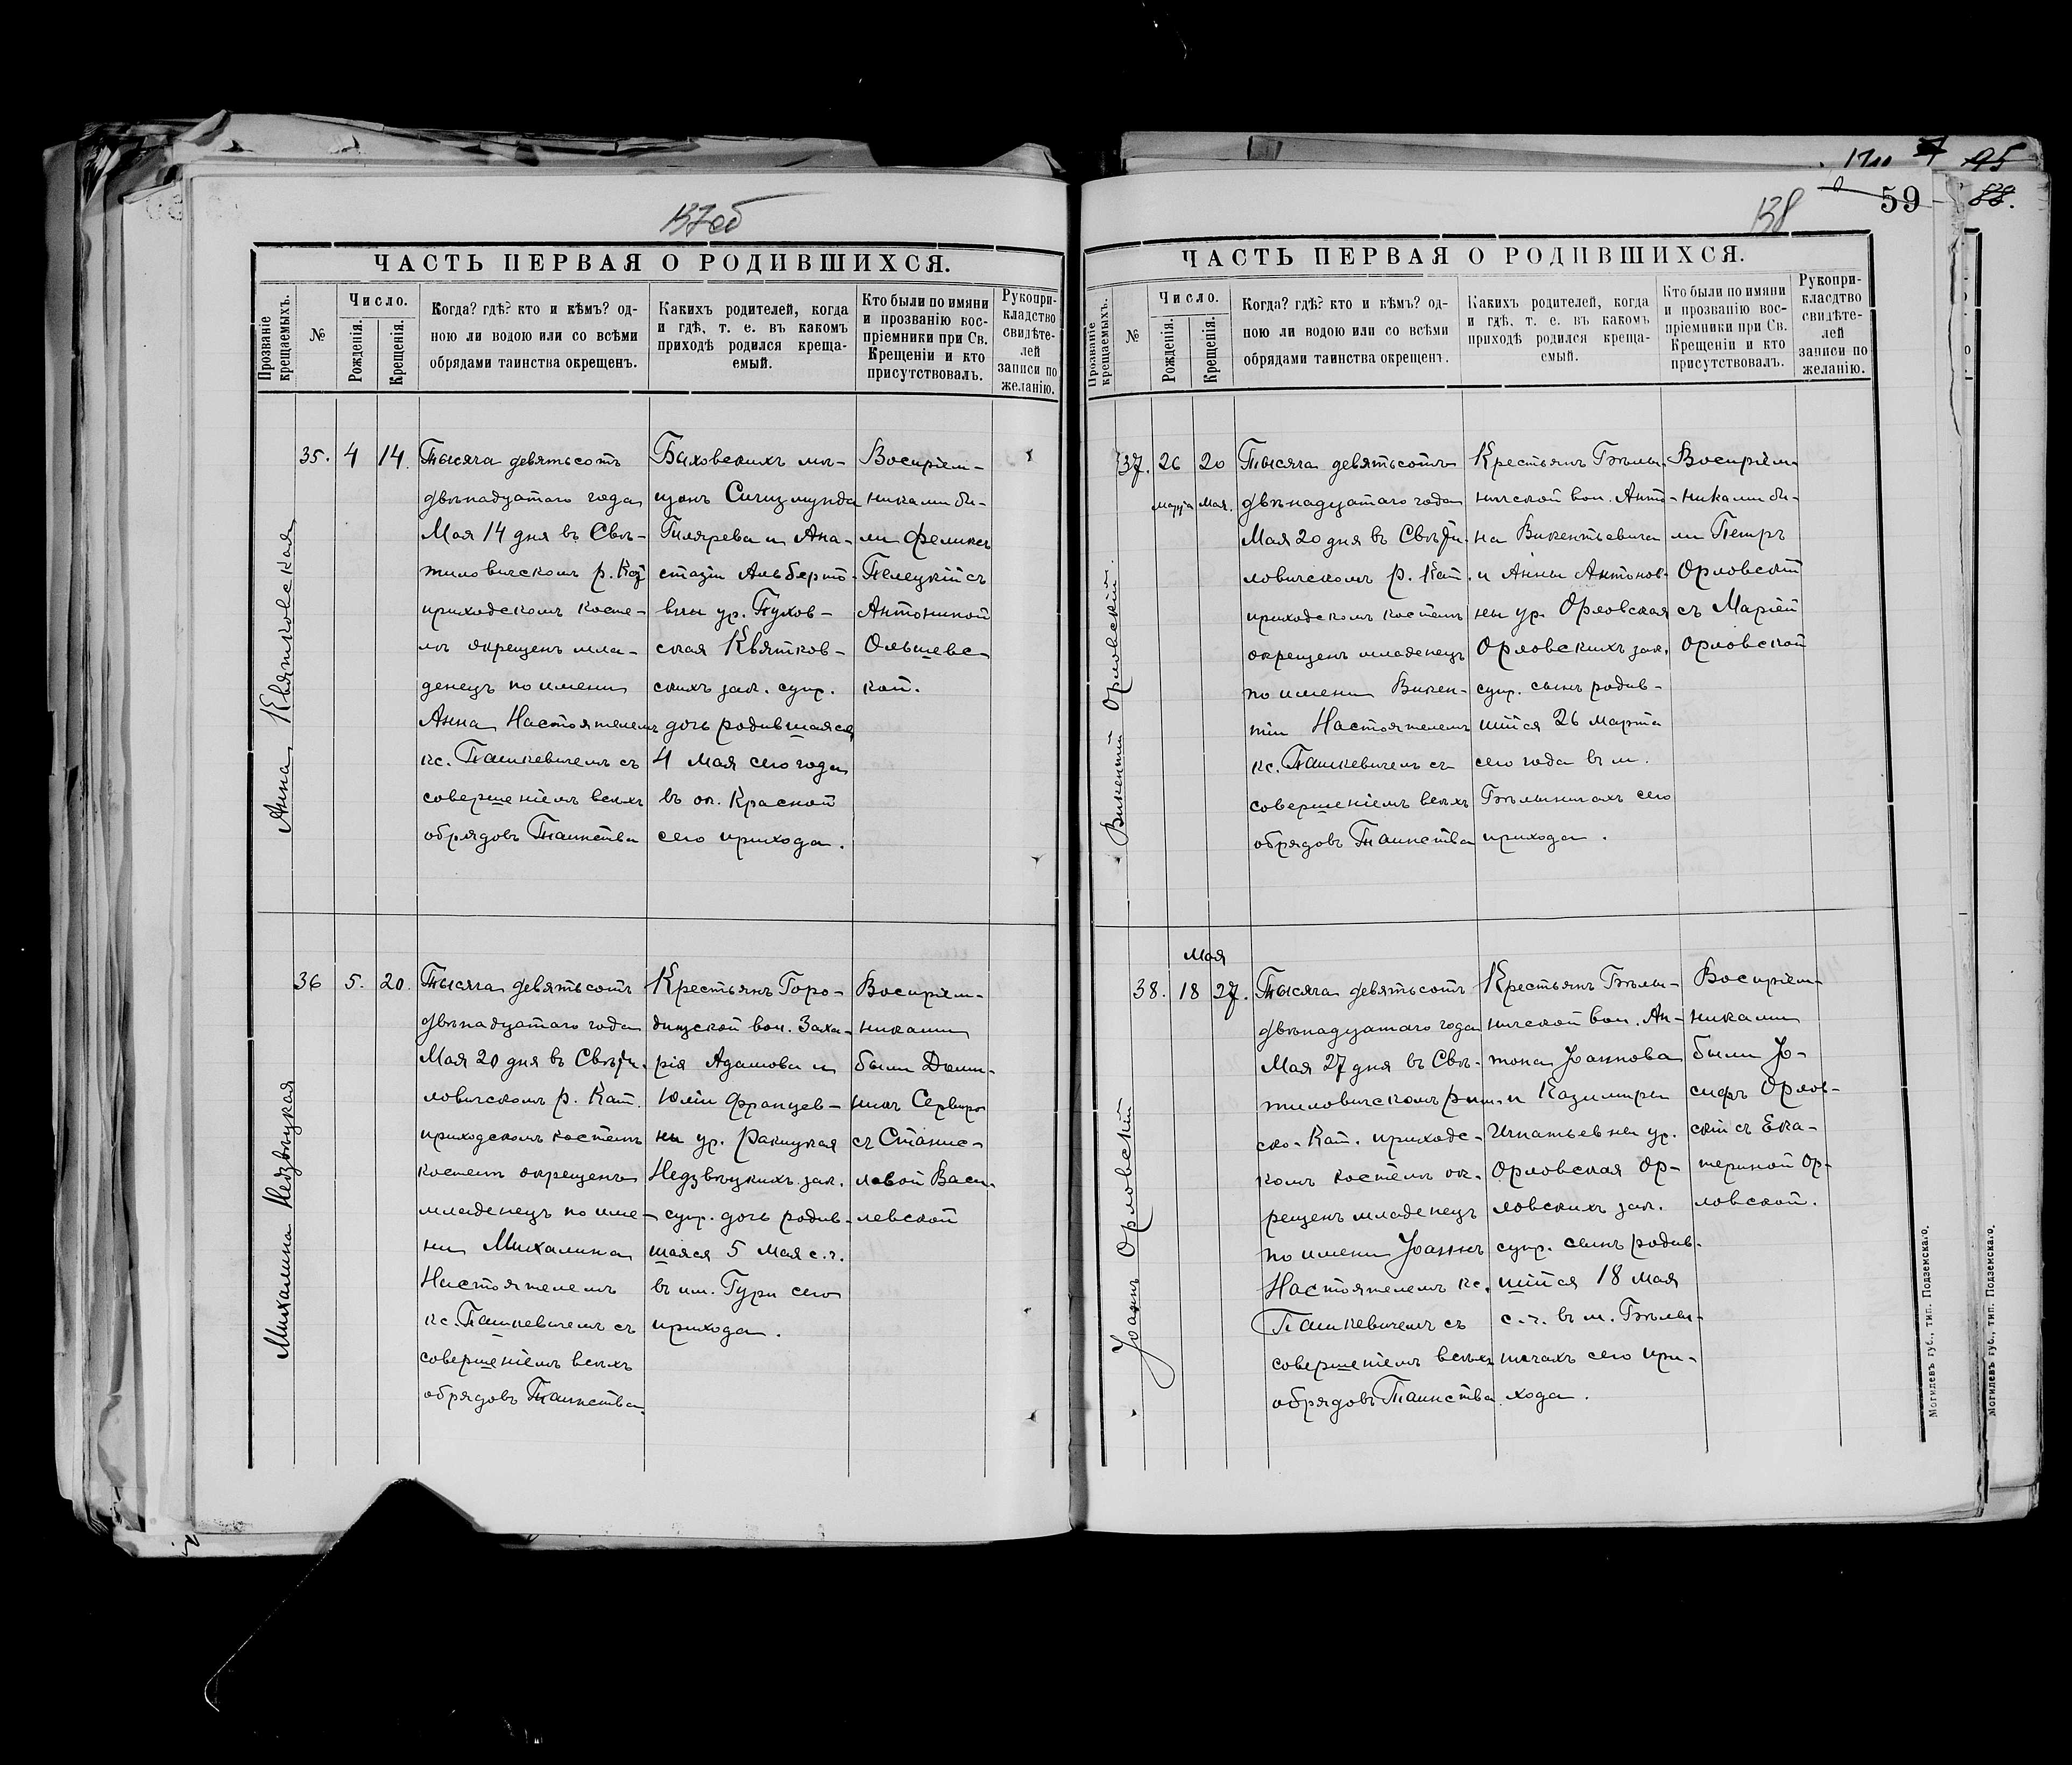 137об
ЧАСТЬ ПЕРВАЯ О РОДИВШИХСЯ.
Прозваніе крещаемыхъ.
№
Число.
Рожденія.
Крещенія.
Когда? гдѣ? кто и кѣмъ? од-
ною ли водою или со всѣми
обрядами таинства окрещенъ.
Какихъ родителей, когда
и гдѣ, т. е. въ какомъ
приходѣ родился креща-
емый.
Кто были по имяни
и прозванію вос-
пріемники при Св.
Крещеніи и кто
присутствовалъ.
Рукопри-
кладство
свидѣте-
лей
записи по
желанію.
Анна Квятковская
35.
4
14.
Тысяча девятьсотъ
двѣнадцатаго года
Мая 14 дня въ Свѣ-
тиловичскомъ р. Кат
приходскомъ косте-
лѣ окрещенъ мла-
денецъ по имени
Анна Настоятелемъ
кс. Пашкевичемъ съ
совершеніемъ всѣхъ
обрядовъ Таинства
Быховскихъ мѣ-
щанъ Сигизмунда
Гилярева и Ана-
стазіи Альберто-
вны ур. Пухов-
ская Квятков-
скихъ зак. супр.
дочь родившаяся
4 Мая сего года
въ ок. Красной
сего прихода.
Воспріем-
никами бы-
ли Феликсъ
Пелецкій съ
Антониной
Ольшевс
кой.
Михалина Недзвѣцкая
36
5.
20.
Тысяча девятьсотъ
двѣнадцатаго года
Мая 20 дня въ Свѣти-
ловичскомъ р. Кат.
приходскомъ костелѣ
костелѣ окрещенъ
младенецъ по име-
ни Михалина
Настоятелемъ
кс. Пашкевичемъ съ
совершеніемъ всѣхъ
обрядовъ Таинства.
Крестьянъ Горо-
дищской вол. Заха-
рія Адамова и
Юліи Францев-
ны ур. Ракицкая
Недзвѣцкихъ зак.
супр. дочь родив-
шаяся 5 Мая с. г.
въ им. Гури сего
прихода.
Воспріем-
никами
были Доми-
никъ
съ Станис-
лавой Васи-
левской
138
59
ЧАСТЬ ПЕРВАЯ О РОДИВШИХСЯ.
Прозваніе крещаемыхъ.
№
Число.
Рожденія.
Крещенія.
Когда? гдѣ? кто и кѣмъ? од-
ною ли водою или со всѣми
обрядами таинства окрещенъ.
Какихъ родителей, когда
и гдѣ, т. е. въ какомъ
приходѣ родился креща-
емый.
Кто были по имяни
и прозванію вос-
пріемники при Св.
Крещеніи и кто
присутствовалъ.
Рукопри-
класдтво
свидѣте-
лей
записи по
желанію.
Викентій Орловскій.
37.
26
Марта
20
Мая.
Тысяча девятьсотъ
двѣнадцатаго года
Мая 20 дня въ Свѣти-
ловичскомъ р. Кат.
приходскомъ костелѣ
окрещенъ младенецъ
по имени Викен-
тій Настоятелемъ
кс. Пашкевичемъ съ
совершеніемъ всѣхъ
обрядовъ Таинства
Крестьянъ Бѣлы-
ничской вол. Анто-
на Викентьевича
и Анны Антонов-
ны ур. Орловская
Орловскихъ зак.
супр. сынъ родив-
шійся 26 Марта
сего года въ м.
Бѣлыничахъ сего
прихода.
Воспріем-
никами бы-
ли Петръ
Орловскій
съ Маріей
Орловской
Іоаннъ Орловскій
38.
Мая
18
27.
Тысяча девятьсотъ
двѣнадцатаго года
Мая 27 дня въ Свѣ-
тиловичскомъ рим.
ско-Кат. приходс-
комъ костелѣ ок-
рещенъ младенецъ
по имени Іоаннъ
Настоятелемъ кс.
Пашкевичемъ съ
совершеніемъ всѣхъ
обрядовъ Таинства.
Крестьянъ Бѣлы-
ничской вол. Ан-
тона Іоаннова
и Казимиры
Игнатьевны ур.
Орловская Ор-
ловскихъ зак.
супр. сынъ родив-
шійся 18 Мая
с. г. въ м. Бѣлы-
ничахъ сего при-
хода.
Воспріем-
никами
были Іо-
сифъ Орлов-
скій съ Ека-
териной Ор-
ловской.
Могилевъ губ., тип. Подземскаго.
Могилевъ губ., тип. Подземскаго.